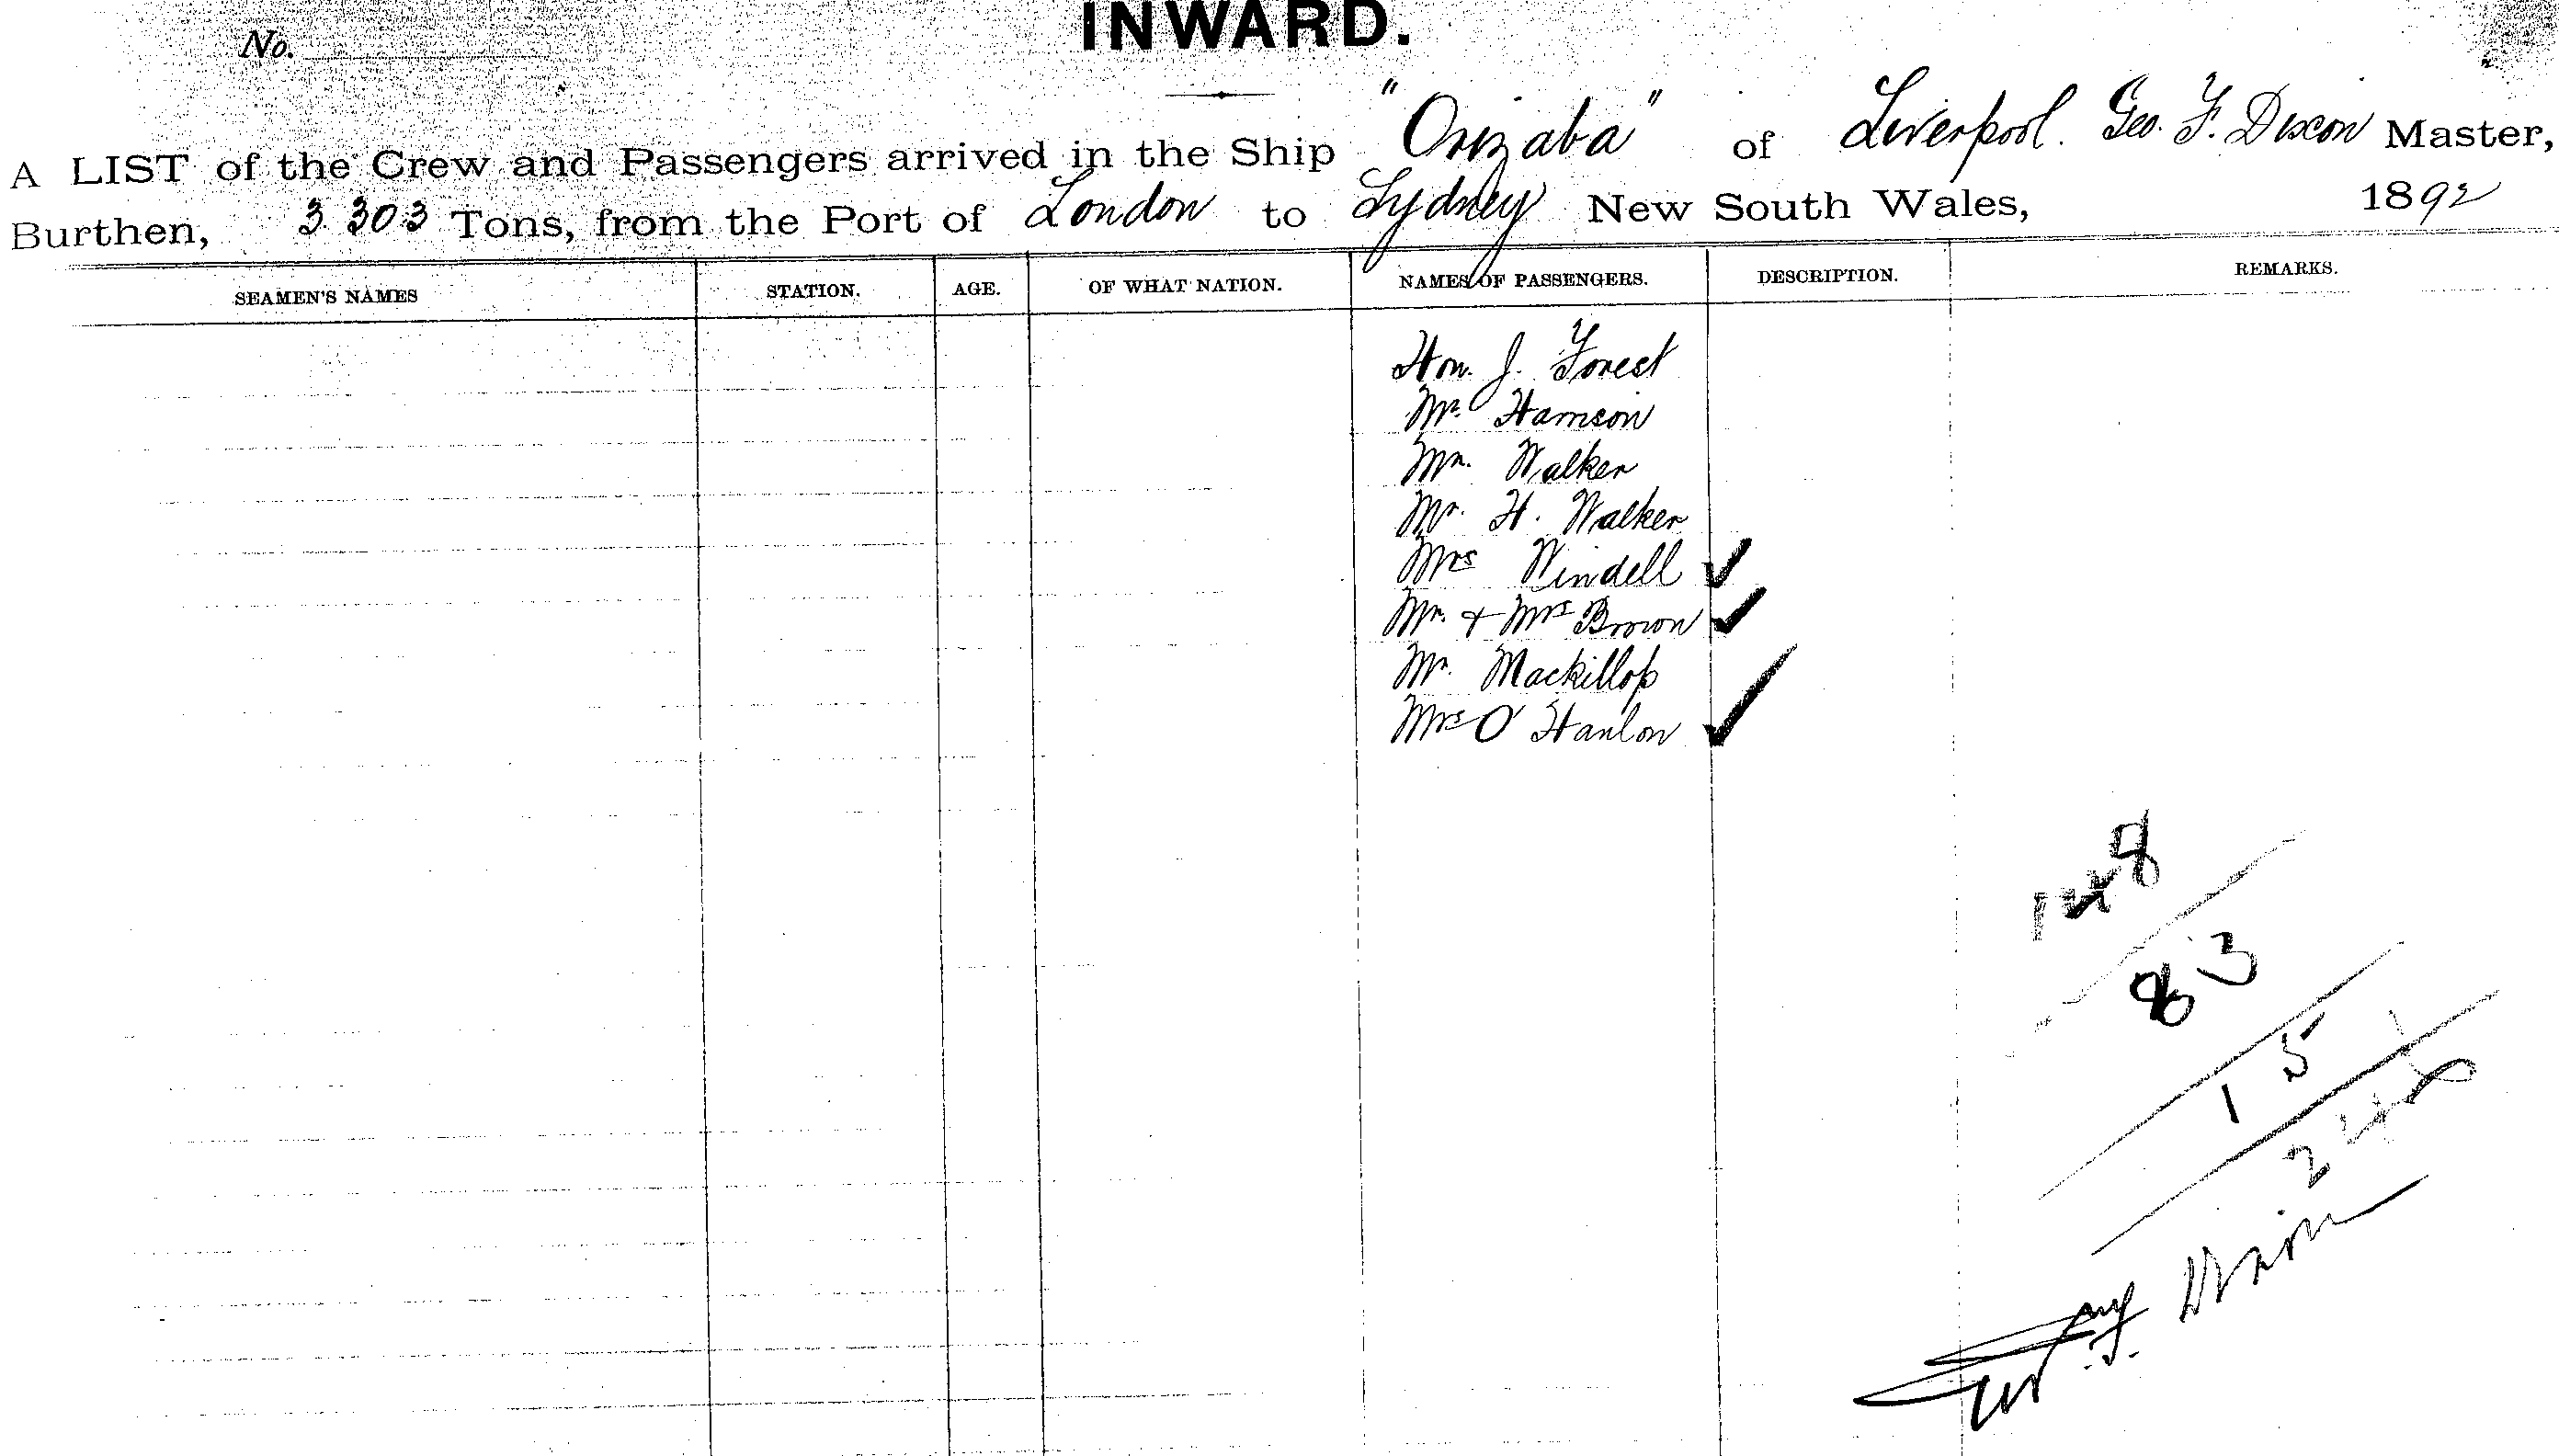 INWARD.
No.
A LIST of the Crew and Passengers arrived in the Ship "Orizaba" of Liverpool. Geo. F. Dixon Master,
Burthen, 3303 Tons, from the Port of London to Sydney New South Wales, 1892
SEAMEN'S NAMES STATION. AGE. OF WHAT NATION. NAMES OF PASSENGERS. DESCRIPTION. REMARKS.
Hon. J. Forest
Mr. Harrison
Mr. Walker
Mr. H. Walker
Mrs Windell
Mr. & Mrs Brown
Mr. Mackillop
Mrs O'Hanlon
83
15